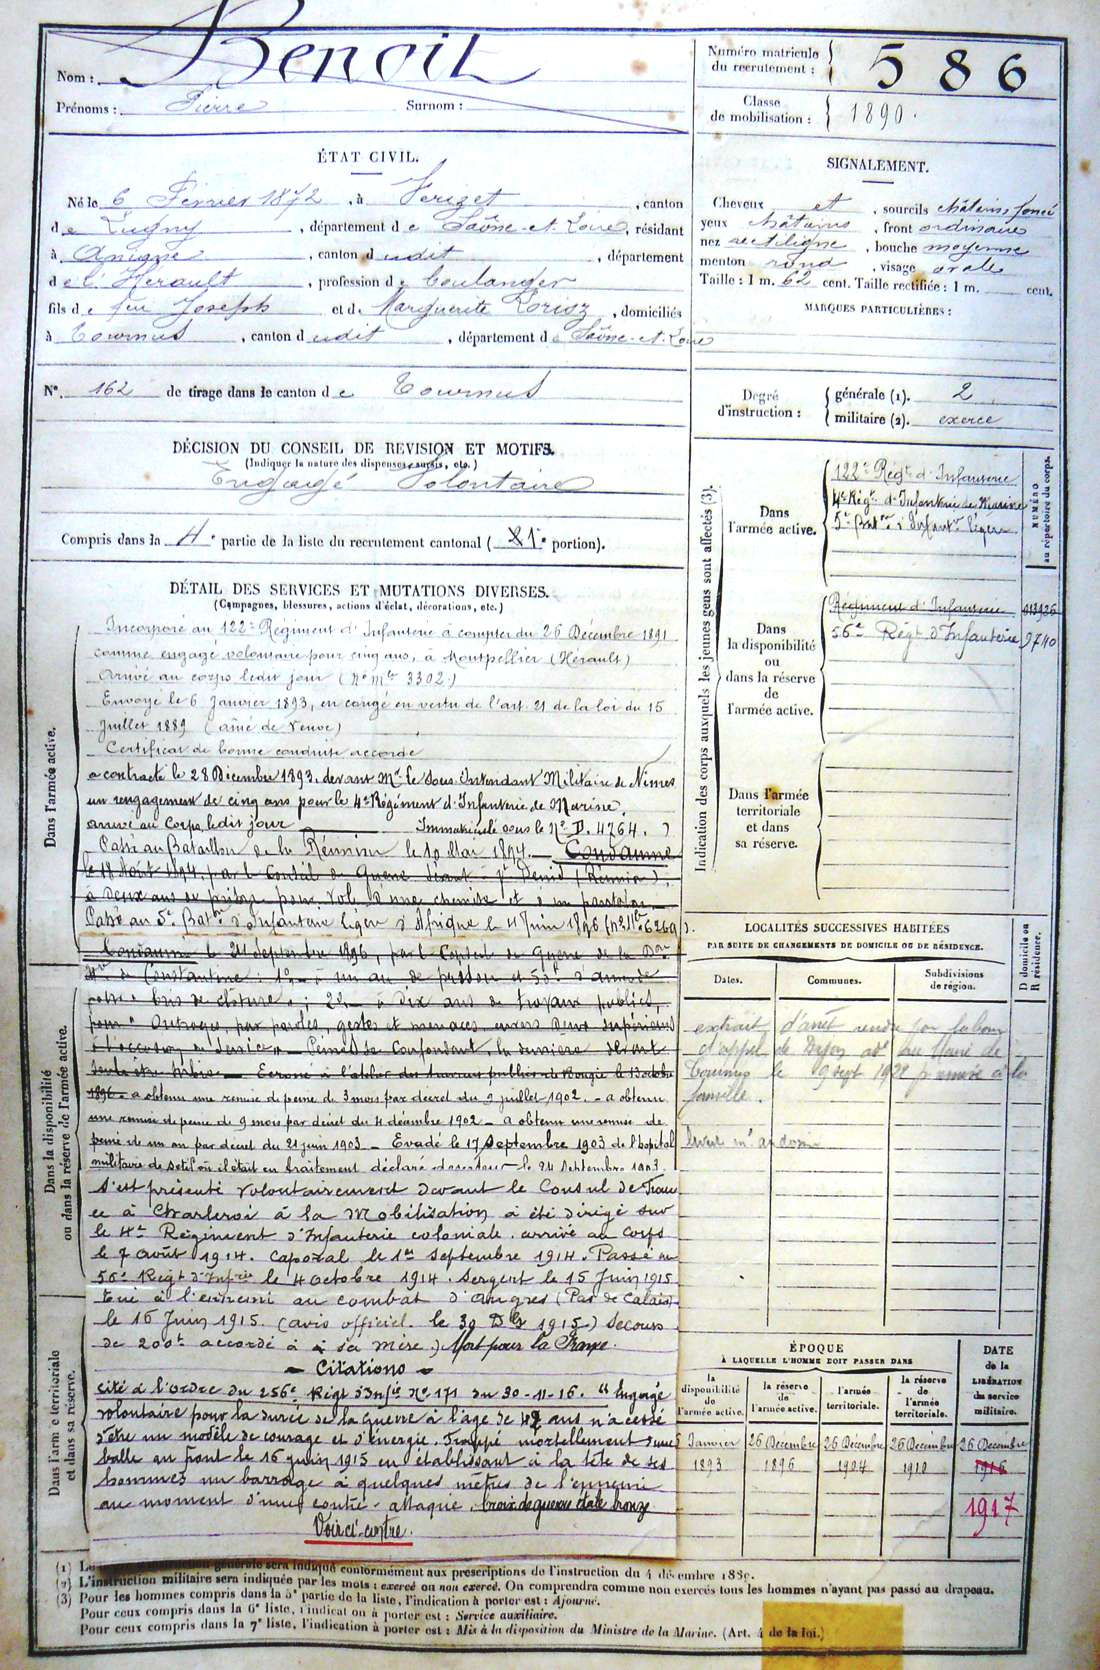 Nom : Benoit
Prénoms : Pierre Surnom :
Numéro matricule du recrutement : 586
Classe de mobilisation : 1890.
ÉTAT CIVIL.
Né le 6 Février 1872, à Verizet, canton
de Lugny, département de Saône-et-Loire, résidant
à Aniane, canton dudit, département
de l'Hérault, profession de boulanger
fils de feu Joseph et de Marguerite Lorioz, domiciliés
à Tournus, canton dudit, département de Saône-et-Loire
N° 162 de tirage dans le canton de Tournus
SIGNALEMENT.
Cheveux et, sourcils châtains foncé
yeux châtains, front ordinaire
nez rectiligne, bouche moyenne
menton rond, visage ovale
Taille : 1 m. 62 cent. Taille rectifiée : 1 m. cent.
MARQUES PARTICULIÈRES :
Degré d'instruction : générale (1). 2
militaire (2). exercé
DÉCISION DU CONSEIL DE REVISION ET MOTIFS.
(Indiquer la nature des dispenses, sursis, etc.)
Engagé Volontaire
Compris dans la 4e partie de la liste du recrutement cantonal ( portion).
DÉTAIL DES SERVICES ET MUTATIONS DIVERSES.
(Campagnes, blessures, actions d'éclat, décorations, etc.)
Dans l'armée active.
Incorporé au 122e Régiment d'Infanterie à compter du 26 Décembre 1891
comme engagé volontaire pour cinq ans, à Montpellier (Hérault)
Arrivé au corps ledit jour (No Mle 3302.)
Envoyé le 6 Janvier 1893, en congé en vertu de l'art. 21 de la loi du 15
Juillet 1889 (aîné de Veuve)
Certificat de bonne conduite accordé
a contracté le 28 Décembre 1893, devant Mr le Sous-Intendant Militaire de Nimes
un rengagement de cinq ans pour le 4e Régiment d'Infanterie de Marine.
arrivé au Corps ledit jour Immatriculé sous le No D. 4764.
Passé au Bataillon de la Réunion le 10 Mai 1894. Condamné
le 18 Août 1894, par le Conseil de Guerre séant à St Denis (Réunion),
à deux ans de prison pour vol d'une chemise et d'un pantalon.
Passé au 5e Baton d'Infanterie légère d'Afrique le 4 Juin 1896 (No Mle 6269).
Dans la disponibilité ou dans la réserve de l'armée active.
Condamné le 24 septembre 1896, par le Conseil de Guerre de la Don
de Constantine 1o à un an de prison et 50f d'amende
pour « bris de clôture » ; 2o à dix ans de travaux publics,
pour « Outrages, par paroles, gestes et menaces, envers deux supérieurs
à l'occasion du service ». Peines se confondant, la dernière devant
seule être subie. Écroué à l'atelier des travaux publics de Bougie le 13 octobre
1896. a obtenu une remise de peine de 3 mois par décret du 9 juillet 1902. a obtenu
une remise de peine de 9 mois par décret du 4 décembre 1902 - a obtenu une remise de
peine de un an par décret du 21 juin 1903 - Evadé le 17 septembre 1903 de l'hôpital
militaire de Sétif où il était en traitement déclaré déserteur le 24 septembre 1903.
s'est présenté volontairement devant le Consul de Fran
ce à Charleroi à la Mobilisation a été dirigé sur
le 4e Régiment d'Infanterie coloniale. arrivé au corps
le 7 août 1914. Caporal le 1er septembre 1914. Passé au
56e Régt d'Infrie le 4 octobre 1914. Sergent le 15 juin 1915
Dans l'armée territoriale et dans sa réserve.
Tué à l'ennemi au combat d'Angres (Pas de Calais)
le 16 Juin 1915. (avis officiel le 30 Dbre 1915.) Secours
de 200f accordé à sa mère.) Mort pour la France.
Citations
Cité à l'ordre du 256e Régt d'Infie No 171 du 30-11-16. "Engagé
volontaire pour la durée de la guerre à l'âge de 42 ans n'a cessé
d'être un modèle de courage et d'énergie. Frappé mortellement d'une
balle au front le 16 juin 1915 en établissant à la tête de ses
hommes un barrage à quelques mètres de l'ennemi
au moment d'une contre-attaque. Croix de guerre étoile bronze
Voir ci-contre.
Indication des corps auxquels les jeunes gens sont affectés (3).
NUMÉRO au répertoire du corps.
Dans l'armée active.
122e Régt d'Infanterie
4e Régt d'Infanterie de Marine
5e Baton d'Infantie légère
Dans la disponibilité ou dans la réserve de l'armée active.
Régiment d'Infanterie 013926
56e Régt d'Infanterie 9740
Dans l'armée territoriale et dans sa réserve.
LOCALITÉS SUCCESSIVES HABITÉES
PAR SUITE DE CHANGEMENTS DE DOMICILE OU DE RÉSIDENCE.
Dates. Communes. Subdivisions de région. D domicile ou R résidence.
extrait d'arrêt rendu par la cour
d'appel de Dijon au Maire de
Tournus le 9 sept à la
famille.
ÉPOQUE
À LAQUELLE L'HOMME DOIT PASSER DANS
DATE de la LIBÉRATION du service militaire.
la disponibilité de l'armée active. la réserve de l'armée active. l'armée territoriale. la réserve de l'armée territoriale.
Janvier 26 Décembre 26 Décembre 26 Décembre 26 Décembre
1893 1896 1904 1910 1916
1917
(1) L'instruction générale sera indiqué conformément aux prescriptions de l'instruction du 4 décembre 1889.
(2) L'instruction militaire sera indiquée par les mots : exercé ou non exercé. On comprendra comme non exercés tous les hommes n'ayant pas passé au drapeau.
(3) Pour les hommes compris dans la 5e partie de la liste, l'indication à porter est : Ajourné.
Pour ceux compris dans la 6e liste, l'indication à porter est : Service auxiliaire.
Pour ceux compris dans la 7e liste, l'indication à porter est : Mis à la disposition du Ministre de la Marine. (Art. 4 de la loi.)